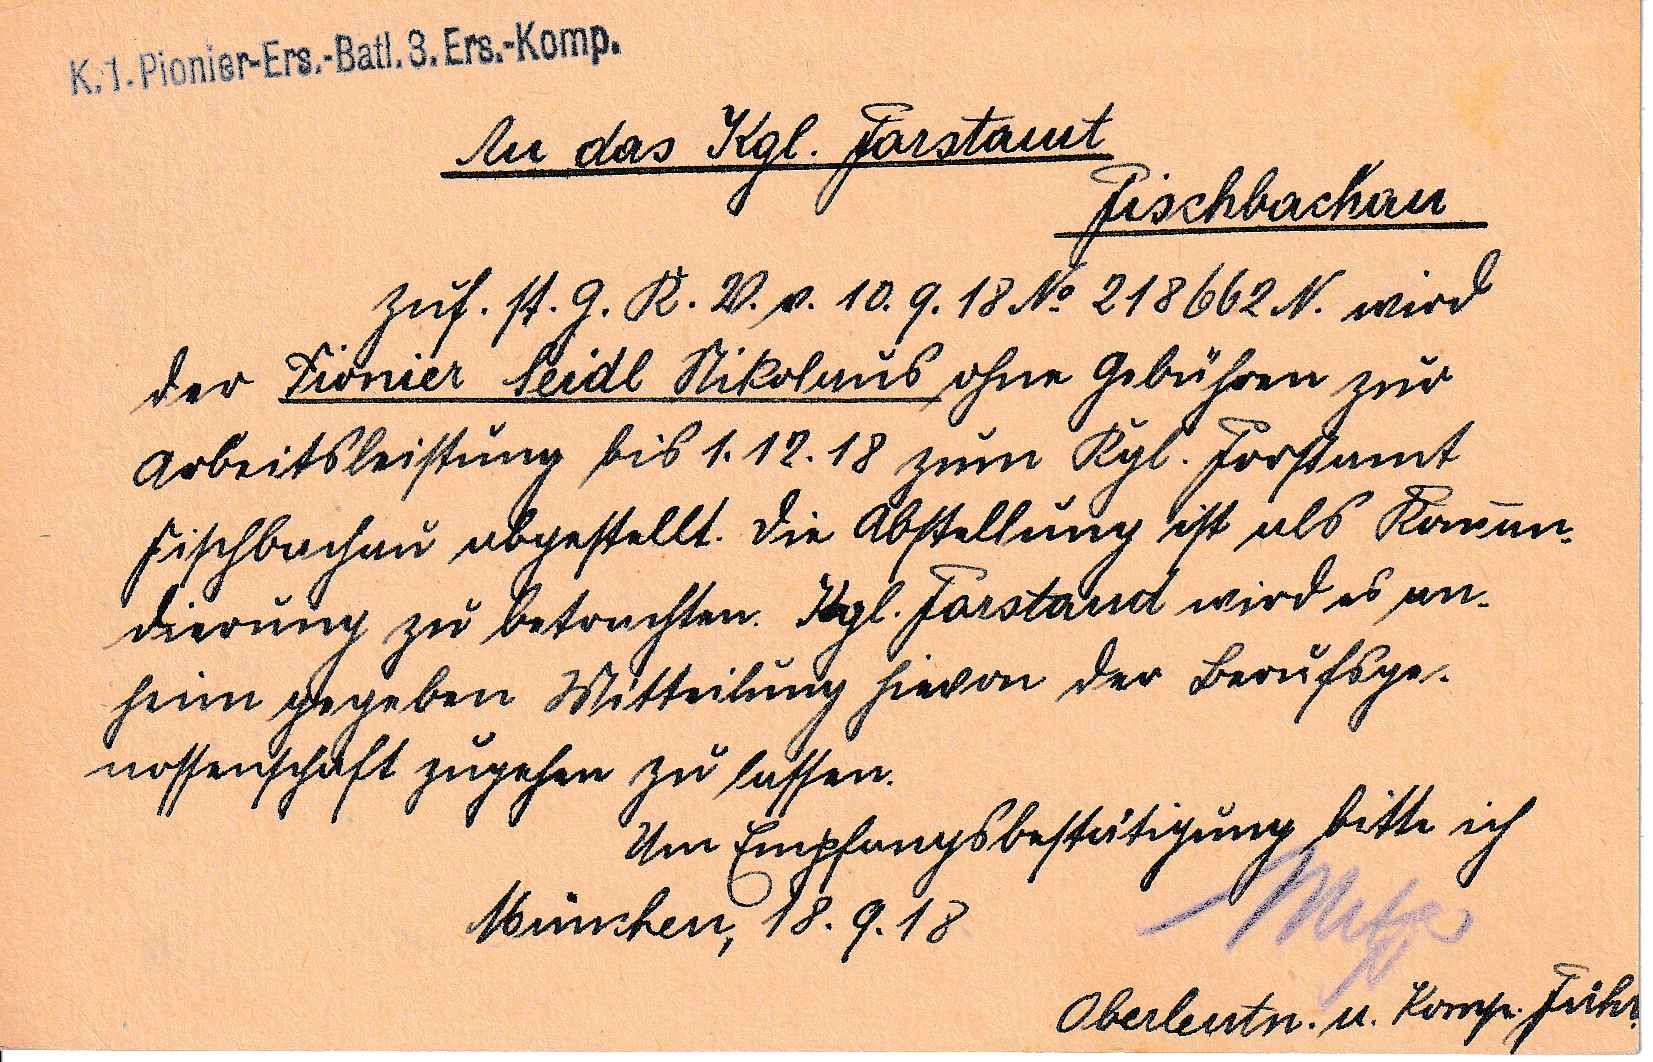 K. 1. Pionier-Ers.-Batl. 3. Ers.-Komp.
An das Kgl. Forstamt
Fischbachau
Zuf. st. G. K. V. v. 10. 9. 18 No 218662 N. wird
der Pionier Seidl Nikolaus ohne Gebühren zur
Arbeitsleistung bis 1. 12. 18 zum Kgl. Forstamt
Fischbachau abgestellt. Die Abstellung ist als Kom̅an-
dierung zu betrachten. Kgl. Forstamd wird es an-
heim gegeben Mitteilung hievon der Berufsge-
nossenschaft zugehen zu lassen.
Um Empfangsbestätigung bitte ich
München, 18. 9. 18
Oberleutn. u. Komp. Führ.